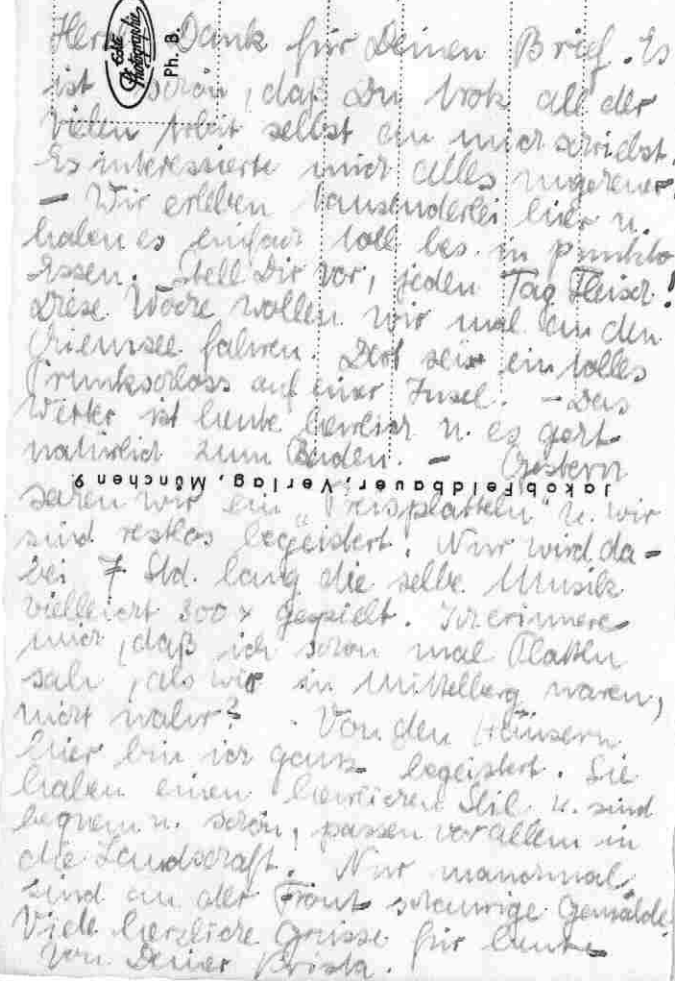 Herz. Dank für Deinen Brief. Es
ist schön, daß Du trotz all der
vielen Arbeit selbst an mich schriebst.
Es interessierte mich alles ungeheuer.
– Wir erleben tausenderlei hier u.
haben es einfach toll bes. in punkto
Essen. Stell Dir vor, jeden Tag Fleisch!
Diese Woche wollen wir mal an den
Chiemsee fahren. Dort sei ein tolles
Prunkschloss auf einer Insel. – Das
Wetter ist heute herrlich u. es geht
natürlich zum Baden. – Gestern
sahen wir ein „Preisplatteln" u. wir
sind restlos begeistert. Nur wird da-
bei 7 Std. lang die selbe Musik
vielleicht 300 x gespielt. Ich erinnere
mich, daß ich schon mal Platteln
sah, als wir in Mittelberg waren,
nicht wahr? Von den Häusern
hier bin ich ganz begeistert. Sie
haben einen herrlichen Stil u. sind
bequem u. schön, passen vor allem in
die Landschaft. Nur manchmal
sind an der Front schaurige Gemälde.
Viele herzliche Grüsse für heute
von Deiner
Echte
Photographie
Ph. B.
Jakob Feldbauer, Verlag, München 9